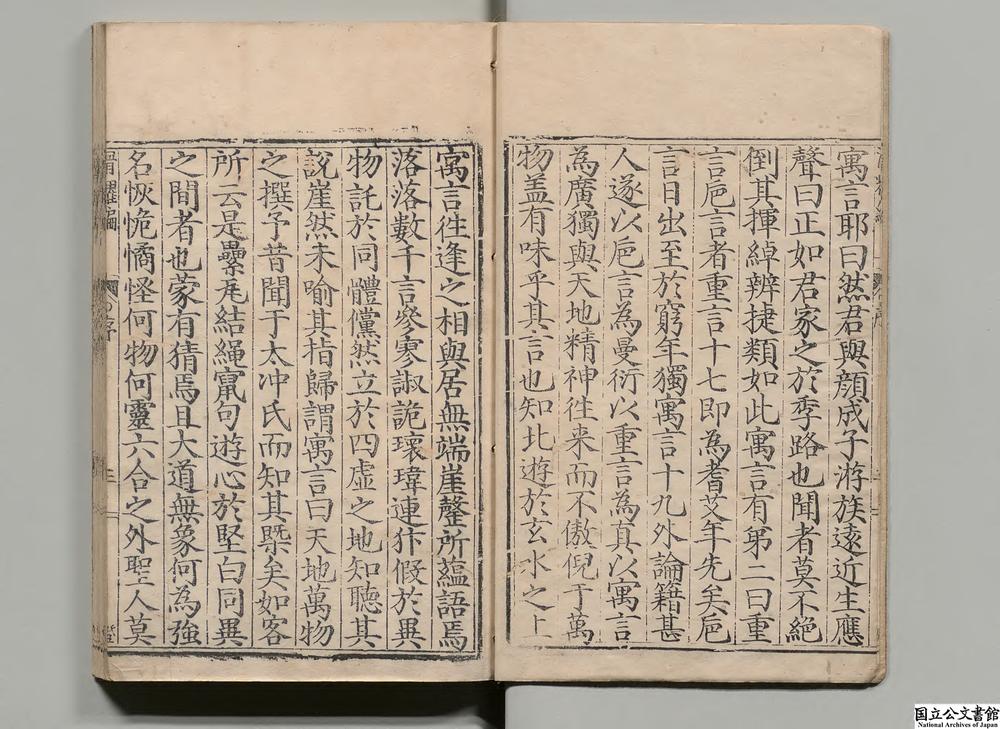 寓言耶曰然君與顔成子游族遠近生應
聲曰正如君家之於季路也聞者莫不絶
倒其揮綽辨捷類如此寓言有第二曰重
言巵言者重言十七即為耆艾年先矣巵
言日出至於窮年獨寓言十九外論籍甚
人遂以巵言為曼衍以重言為真以寓言
為廣獨與天地精神徃来而不傲倪于萬
物盖有味乎其言也知北遊於玄水之上
寓言徃逢之相與居無端崖䥫所蘊語焉
落落數千言參寥諔詭瓌瑋連犿假於異
物託於同體儻然立於四虛之地知聽其
說崖然未喻其指歸謂寓言曰天地萬物
之撰予昔聞于太冲氏而知其槩矣如客
所云是纍尾結繩竄句遊心於堅白同異
之間者也蒙有猜焉且大道無象何為強
名恢恑憰怪何物何靈六合之外聖人莫
序
三
国立公文書館
National Archives of Japan